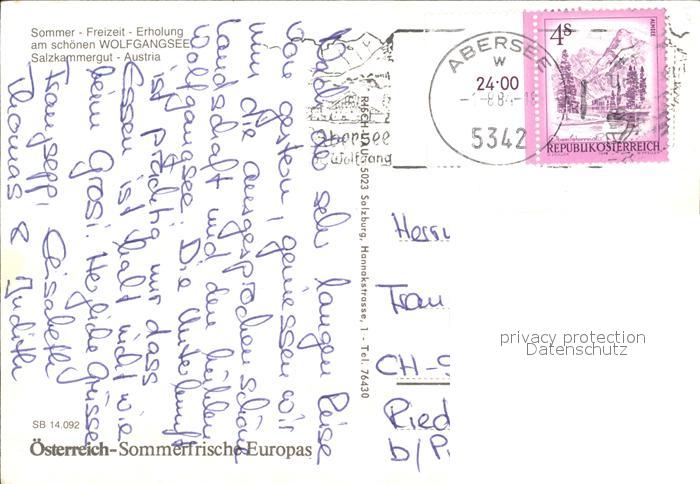 Sommer - Freizeit - Erholung
am schönen WOLFGANGSEE
Salzkammergut - Austria
Nach der sehr langen Reise
von gestern, geniessen wir
nun die ausgesprochen schöne
Landschaft und den kühlen
Wolfgangsee. Die Unterkunft
ist prächtig nur dass
Essen ist halt nicht wie
beim Grosi. Herzliche Grüsse
Franzsepp, Elisabeth
Thomas & Judith
SB 14.092
Österreich-Sommerfrische Europas
5023 Salzburg, Hannakstrasse, 1 - Tel. 76430
Abersee
Wolfgang
ABERSEE
W
24·00
5342
4S
ALMSEE
REPUBLIK ÖSTERREICH
Herrn
CH-
Ried
privacy protection
Datenschutz